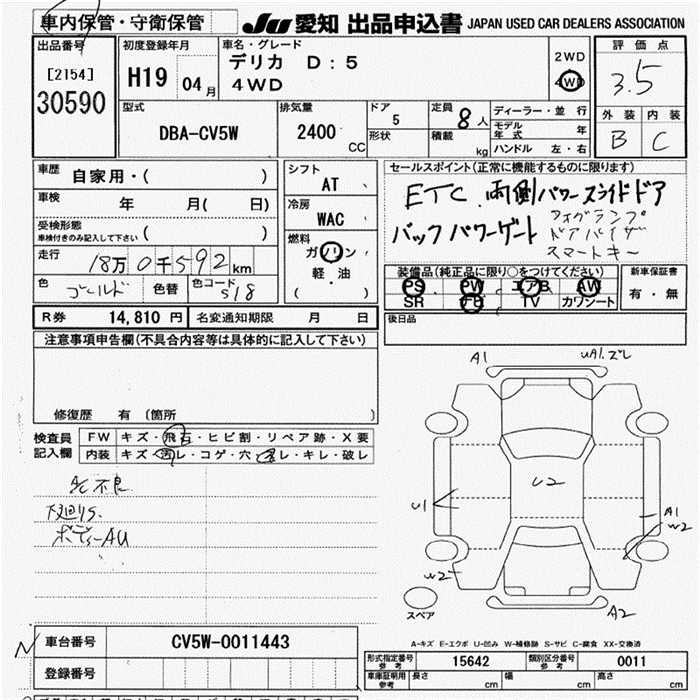 車内保管・守衛保管
JU 愛知 出品申込書 JAPAN USED CAR DEALERS ASSOCIATION
出品番号
[2154]
30590
初度登録年月
H19 04月
車名・グレード
デリカ D：5
4WD
2WD
4WD
評価点
3.5
外装 内装
B C
型式
DBA-CV5W
排気量
2400 CC
ドア
5
形状
定員 8人
積載 kg
ディーラー・並行
モデル年式 年
ハンドル 左・右
車歴
自家用・( )
車検
年 月( 日)
受検形態
車検付きのみ記入して下さい ( )
走行
18万0千592km
色 ゴールド 色替 色コード S18
シフト
AT
冷房
WAC
燃料
ガソリン
軽・油
( )
セールスポイント(正常に機能するものに限ります)
ETC 両側パワースライドドア
バックパワーゲート
フォグランプ
ドアバイザー
スマートキー
装備品(純正品に限り○をつけてください)
PS PW エアB AW
SR ナビ TV カワシート
新車保証書
有・無
後日品
R券 14,810円 名変通知期限 月 日
注意事項申告欄(不具合内容等は具体的に記入して下さい)
修復歴 有 (箇所
検査員記入欄
FW キズ・飛石・ヒビ割・リペア跡・X要
内装 キズ・汚レ・コゲ・穴・スレ・キレ・破レ
A/C不良
下廻りS
ボディーAU
A1
UA1.ズレ
U2
U1
A1
W2
W2
A2
スペア
A-キズ E-エクボ U-凹み W-補修跡 S-サビ C-腐食 XX-交換済
車台番号 CV5W-0011443
登録番号
形式指定番号 参考 15642 類別区分番号 参考 0011
車庫証明用 参考 長さ cm 幅 cm 高さ cm